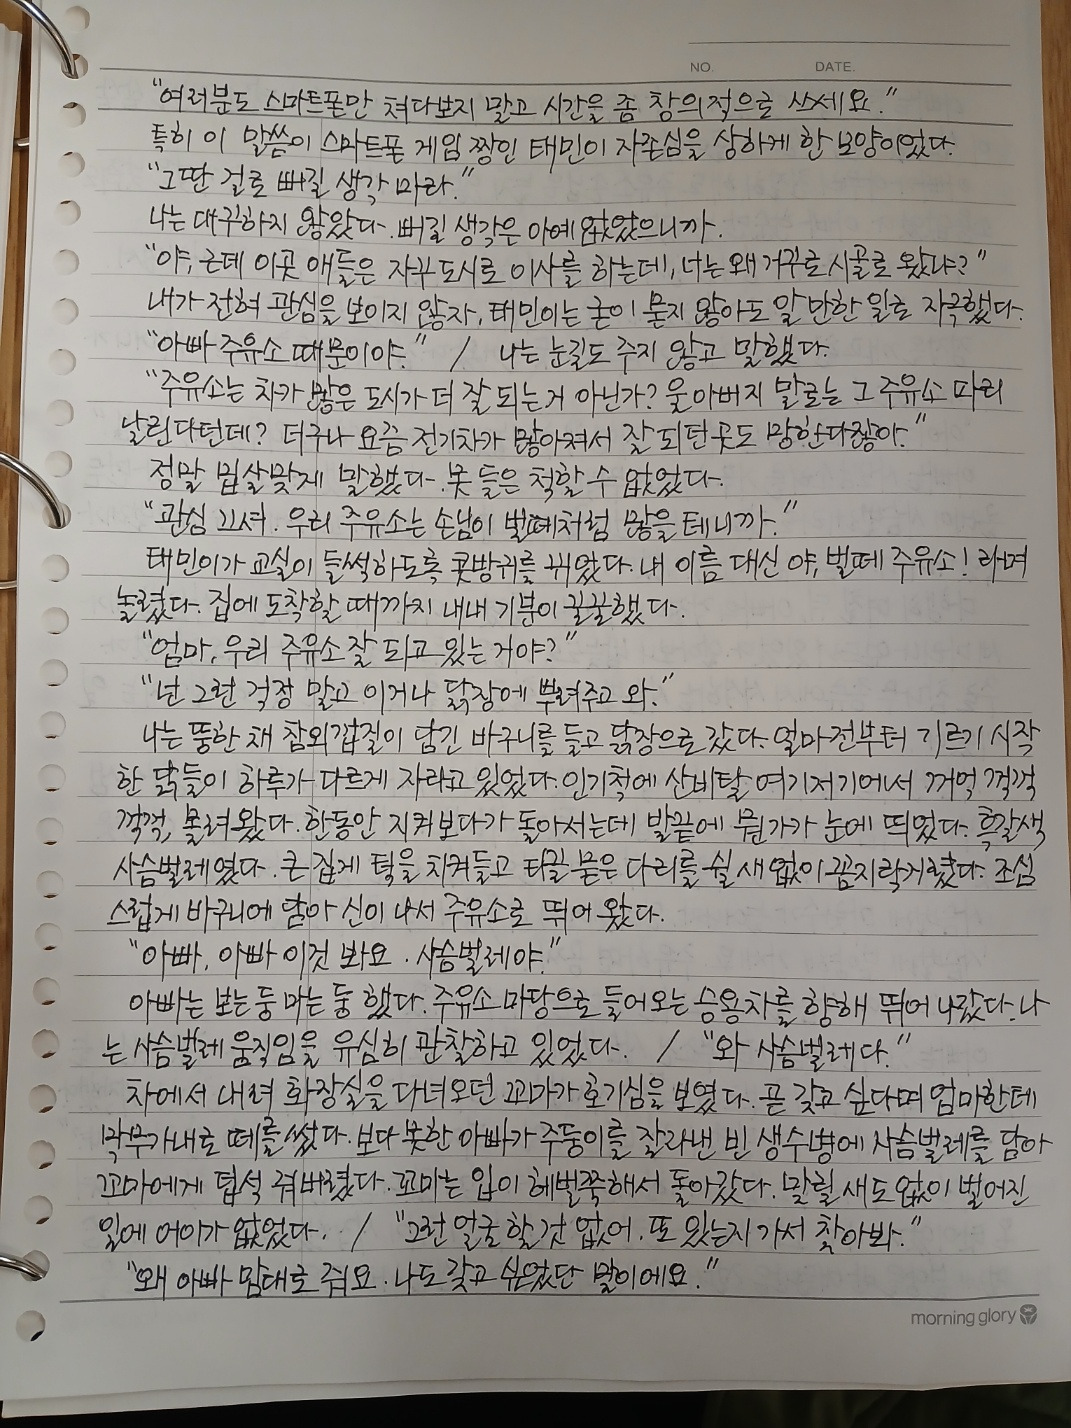 NO. DATE.
"여러분도 스마트폰만 쳐다보지 말고 시간을 좀 창의적으로 쓰세요."
특히 이 말씀이 스마트폰 게임 짱인 태민이 자존심을 상하게 한 모양이었다.
"그딴 걸로 뻐길 생각 마라."
나는 대꾸하지 않았다. 뻐길 생각은 아예 없었으니까.
"야, 근데 이곳 애들은 자꾸 도시로 이사를 하는데, 너는 왜 거꾸로 시골로 왔냐?"
내가 전혀 관심을 보이지 않자, 태민이는 굳이 묻지 않아도 알 만한 일로 자극했다.
"아빠 주유소 때문이야." / 나는 눈길도 주지 않고 말했다.
"주유소는 차가 많은 도시가 더 잘 되는거 아닌가? 울아버지 말로는 그 주유소 파리
날린다던데? 더구나 요즘 전기차가 많아져서 잘 되던곳도 망한다잖아."
정말 밉살맞게 말했다. 못 들은 척할 수 없었다.
"관심 끄셔. 우리 주유소는 손님이 벌떼처럼 많을 테니까."
태민이가 교실이 들썩하도록 콧방귀를 뀌었다. 내 이름 대신 야, 벌떼 주유소! 라며
놀렸다. 집에 도착할 때까지 내내 기분이 꿀꿀했다.
"엄마, 우리 주유소 잘 되고 있는 거야?"
"넌 그런 걱정 말고 이거나 닭장에 뿌려주고 와."
나는 뚱한 채 참외껍질이 담긴 바구니를 들고 닭장으로 갔다. 얼마 전부터 기르기 시작
한 닭들이 하루가 다르게 자라고 있었다. 인기척에 산비탈 여기저기에서 꺼억 꺽꺽
꺽꺽, 몰려왔다. 한동안 지켜보다가 돌아서는데 발끝에 뭔가가 눈에 띄었다. 흑갈색
사슴벌레였다. 큰 집게 턱을 치켜들고 터골 묻은 다리를 쉴 새 없이 꼼지락거렸다. 조심
스럽게 바구니에 담아 신이 나서 주유소로 뛰어 왔다.
"아빠, 아빠 이것 봐요. 사슴벌레야."
아빠는 보는 둥 마는 둥 했다. 주유소 마당으로 들어오는 승용차를 향해 뛰어 나갔다. 나
는 사슴벌레 움직임을 유심히 관찰하고 있었다. / "와 사슴벌레다."
차에서 내려 화장실을 다녀오던 꼬마가 호기심을 보였다. 곧 갖고 싶다며 엄마한테
막무가내로 떼를 썼다. 보다 못한 아빠가 주둥이를 잘라낸 빈 생수병에 사슴벌레를 담아
꼬마에게 덥석 줘버렸다. 꼬마는 입이 헤벌쭉해서 돌아갔다. 말릴 새도 없이 벌어진
일에 어이가 없었다. / "그런 얼굴 할 것 없어. 또 있는지 가서 찾아봐."
"왜 아빠 맘대로 줘요. 나도 갖고 싶었단 말이에요."
morning glory